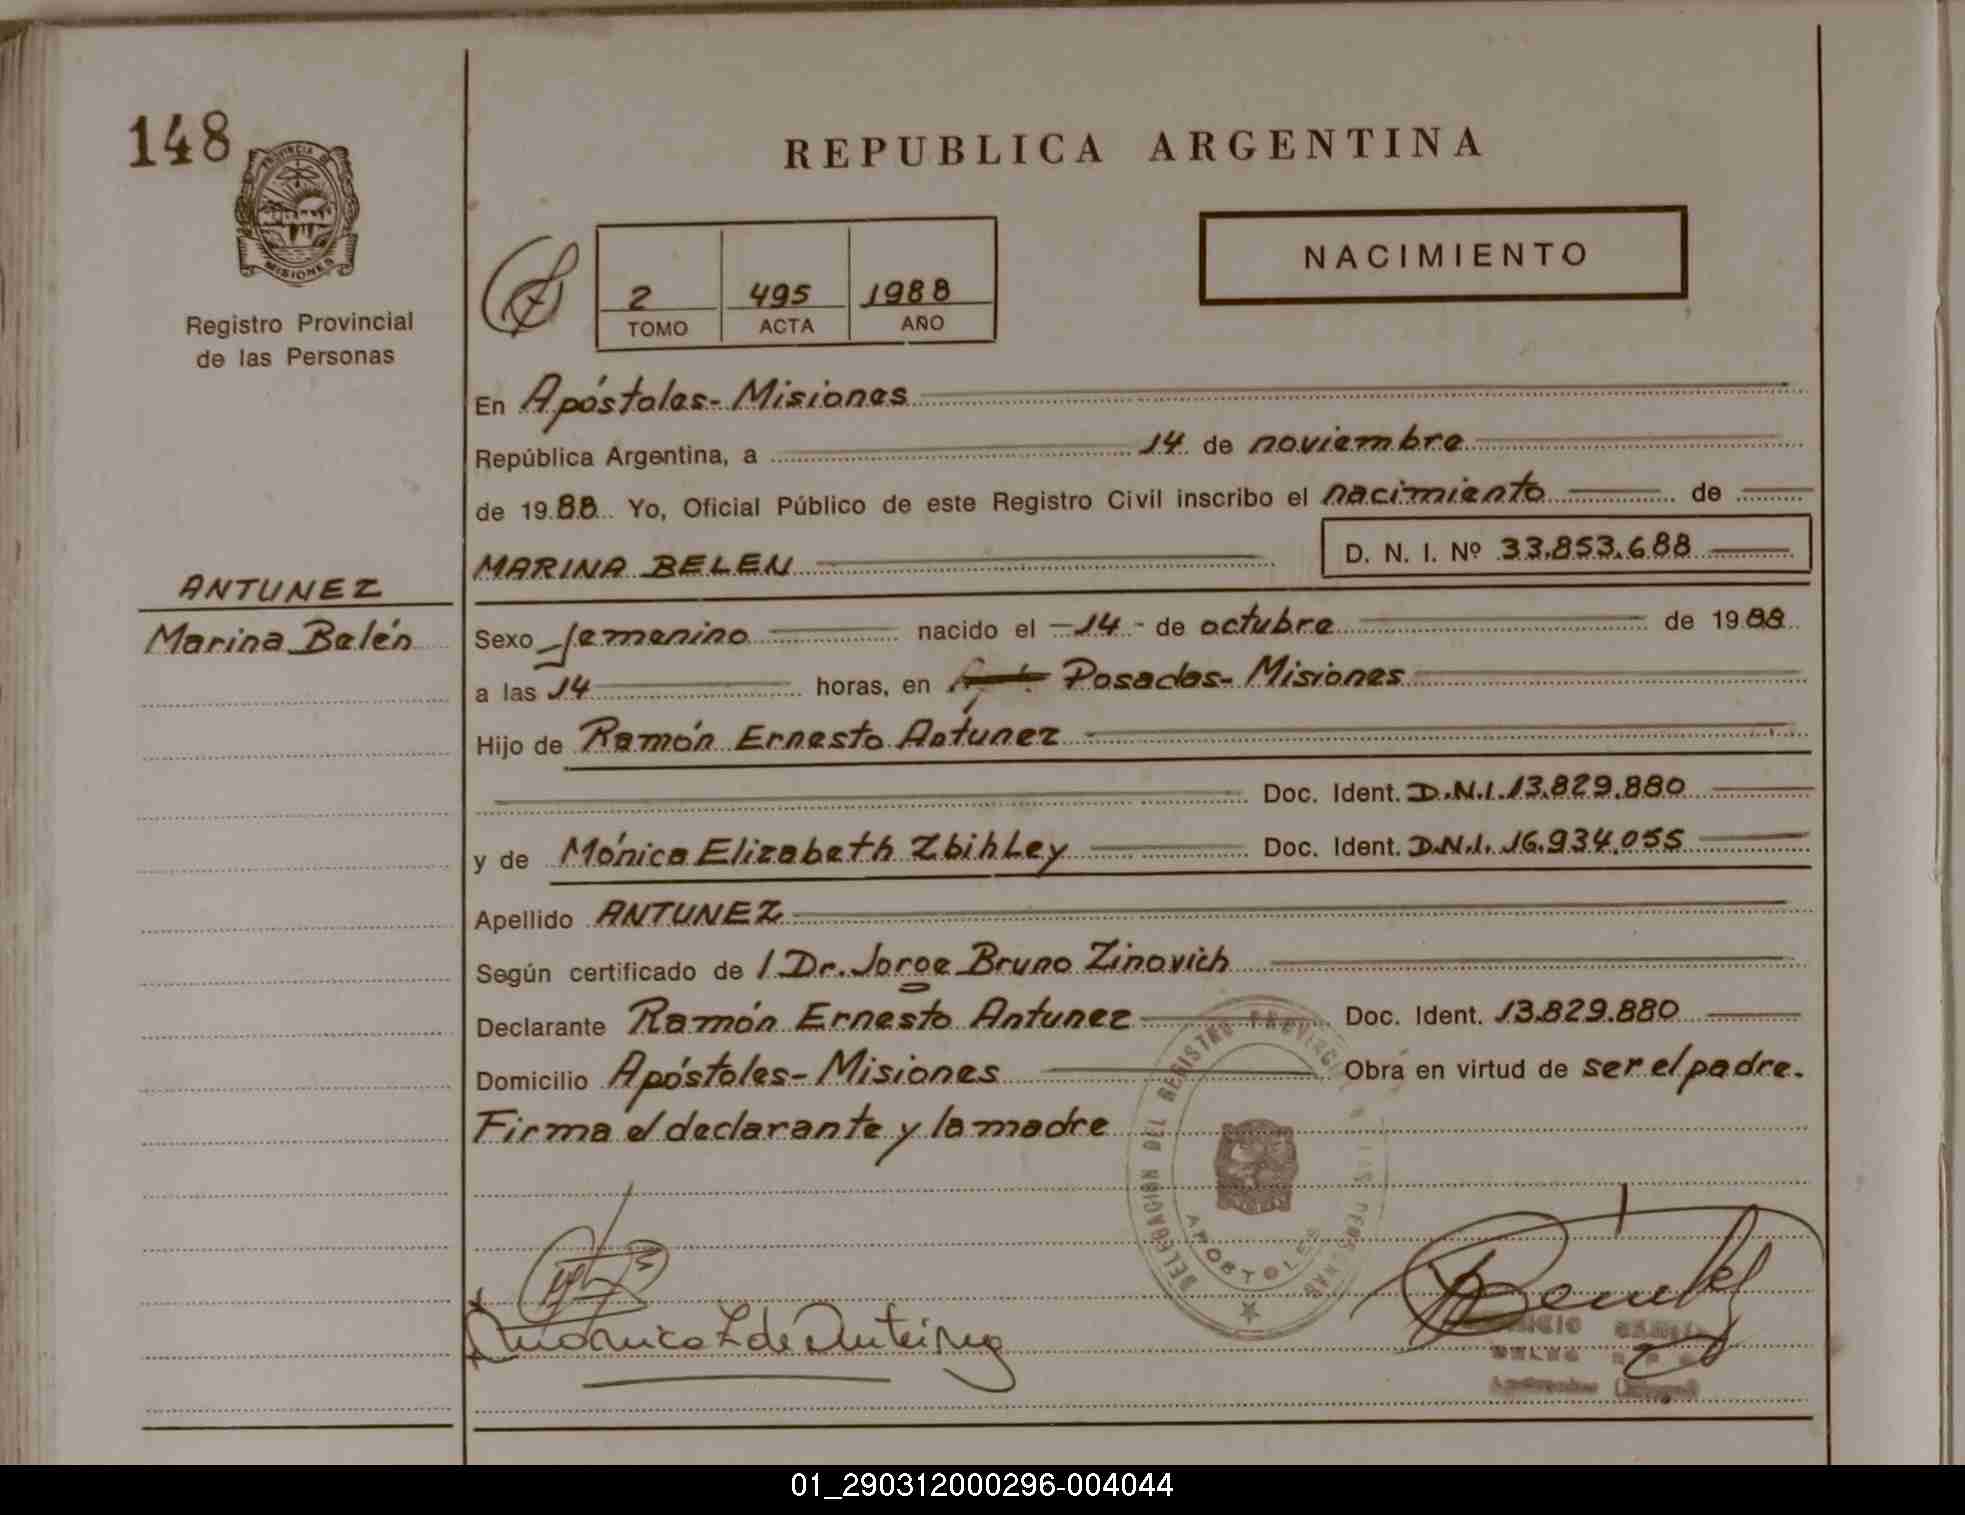 148
REPUBLICA ARGENTINA
PROVINCIA DE
MISIONES
NACIMIENTO
2 495 1988
TOMO ACTA AÑO
Registro Provincial
de las Personas
En Apóstoles- Misiones
República Argentina, a 14 de noviembre
de 1988 Yo, Oficial Público de este Registro Civil inscribo el nacimiento de
MARINA BELEN D. N. I. Nº 33.853.688
ANTUNEZ
Marina Belén
Sexo femenino nacido el -14- de octubre de 1988
a las 14 horas, en Posadas- Misiones
Hijo de Ramón Ernesto Antúnez
Doc. Ident. D.N.I. 13.829.880
y de Mónica Elizabeth Zbihley Doc. Ident. D.N.I. 16.934.055
Apellido ANTUNEZ
Según certificado de / Dr. Jorge Bruno Zinovich
Declarante Ramón Ernesto Antunez Doc. Ident. 13.829.880
Domicilio Apóstoles- Misiones Obra en virtud de ser el padre.
Firma el declarante y la madre
DELEGACION DEL REGISTRO PROVINCIAL DE LAS PERSONAS
APOSTOLES
01_290312000296-004044